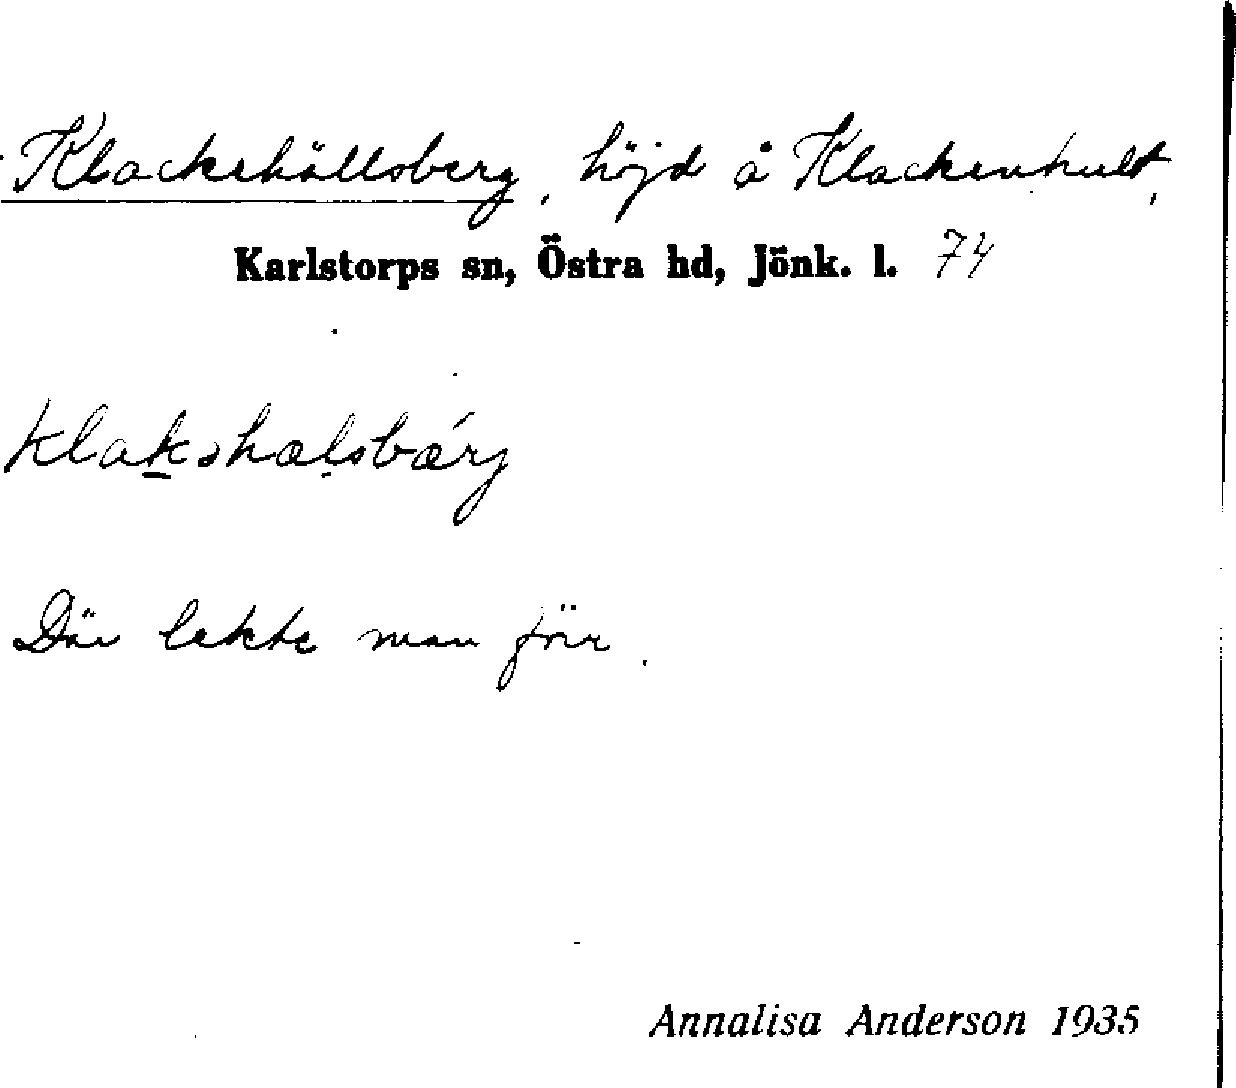 Klackehällsberg, höjd å Klackenhult,
Karlstorps sn, Östra hd, Jönk. l. 74
klakəhælsbærj
Där lekte man förr.
Annalisa Anderson 1935